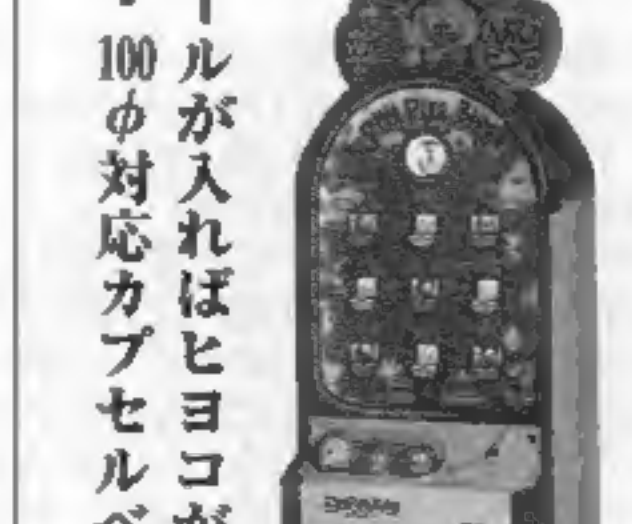 ールが入ればヒヨコが
100φ対応カプセルベ